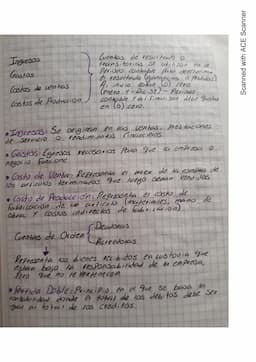 Ingresos
Gastos
Costos de ventas
Costos de Produccion
Cuentas de resultado o
transitorias se utilizan en el
Periodo contable para determinar
el resultado
A. inicia saldo (0) cero
(enero 1 - Dic 31) - Periodo
contable y al finalizar debe quedar
en (0) cero.
• Ingresos: Se originan en las ventas, prestaciones
de servicio o rendimientos financieros.
• Gastos: Egresos necesarios Para que la empresa o
negocio Funcione
• Costo de Ventas: Representa el precio de la compra de
los articulos terminados que luego seran vendidos
• Costo de Producción: Representa el costo de
fabricación de un articulo (materiales, mano de
obra y costos indirectos de fabricación)
Cuentas de Orden
Deudoras
Acreedoras
Representa los bienes recibidos en custodia que
estan bajo la responsabilidad de la empresa,
Pero que no le pertenecen
• Partida Doble: Principio en el que se basa la
contabilidad donde el total de los debitos debe ser
igual al total de los creditos.
Scanned with ACE Scanner